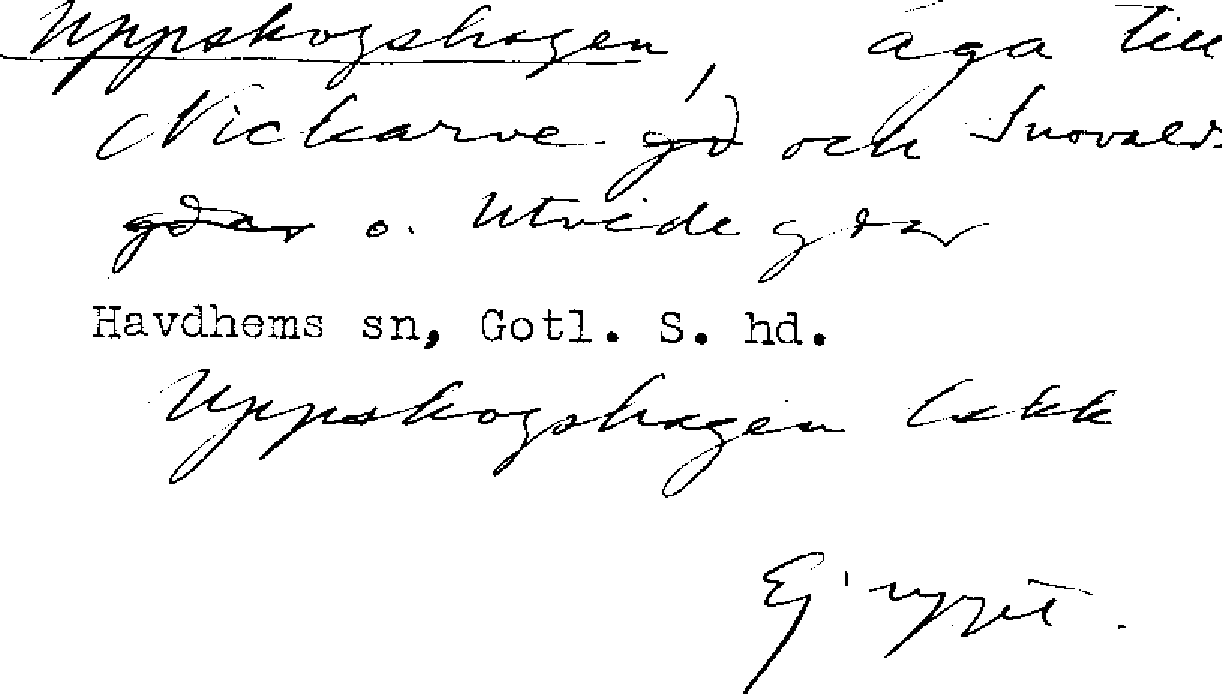 Uppskogshagen, äga till
Nickarve gd och Snovalds
gdar o. Utvide gdar
Havdhems sn, Gotl. S. hd.
Uppskogshagen lskk
Ej uppt.